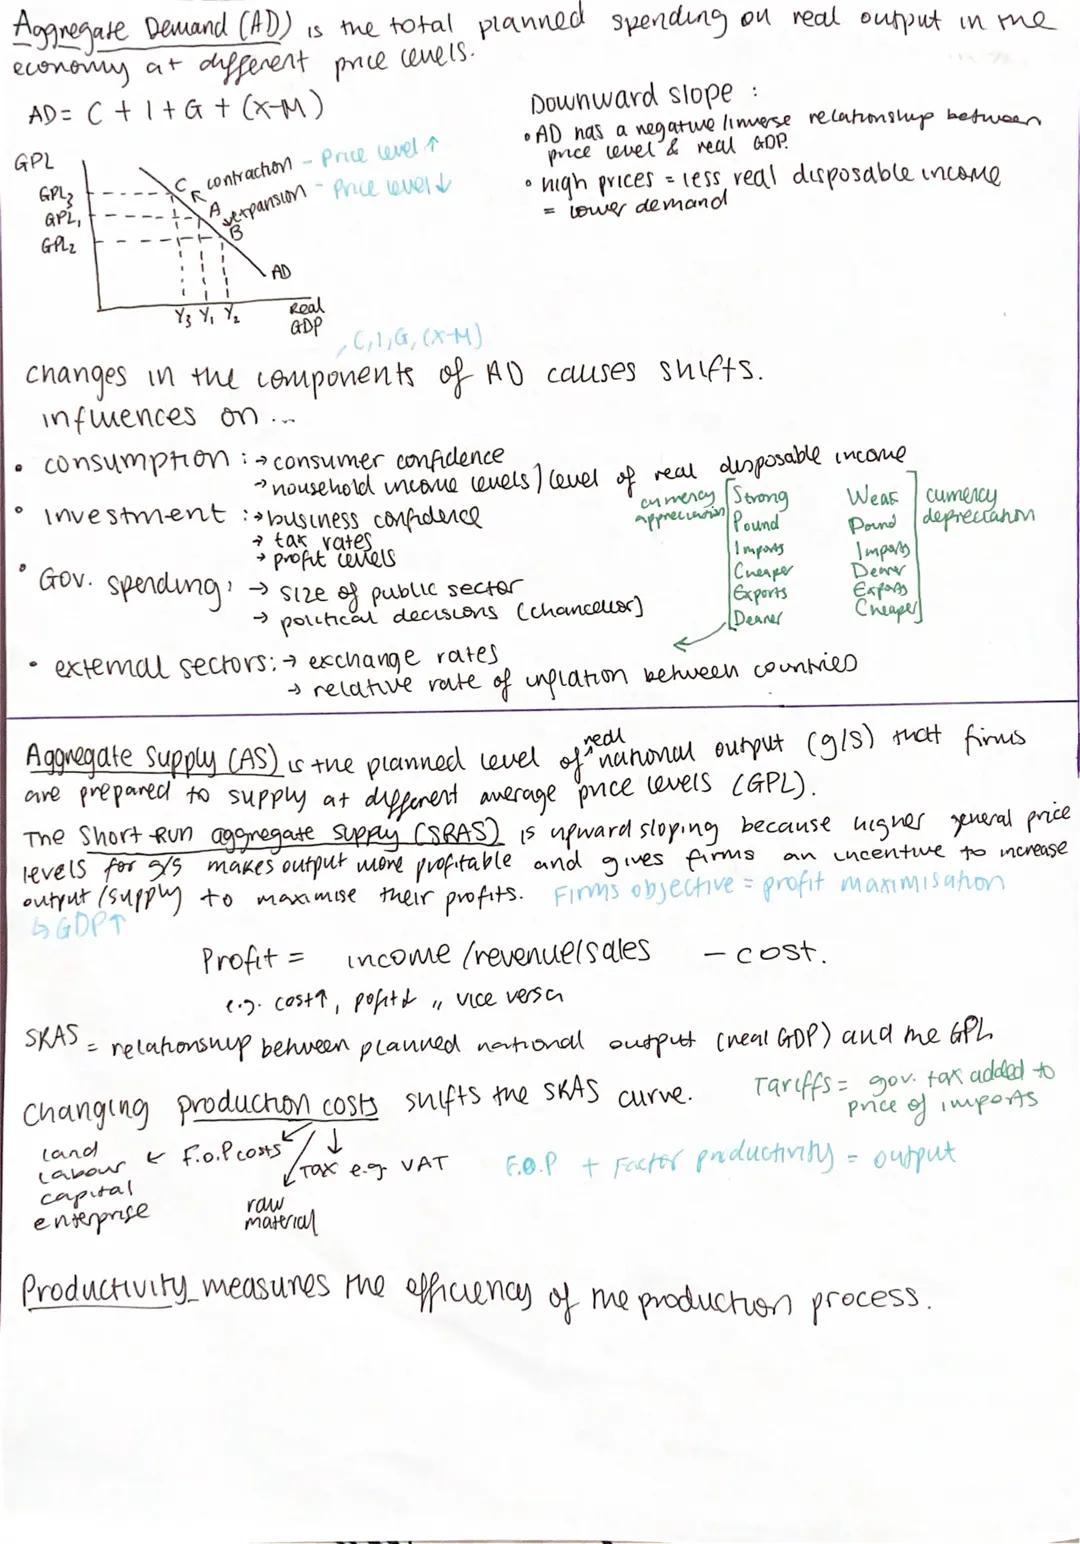 Aggregate Demand (AD) is the total planned spending on real output in the
economy at different price levels.
AD = C + I + G + (X-M)
GPL
GPL3
GPL1
GPL2
C contraction - Price level ↑
A expansion - Price level ↓
B
AD
Y3 Y1 Y2
Real
GDP
Downward slope :
• AD has a negative/inverse relationship between
price level & real GDP.
• high prices = less real disposable income
= lower demand
C, I, G, (X-M)
changes in the components of AD causes shifts.
influences on ...
• consumption : → consumer confidence
→ household income levels / level of real disposable income
• investment : → business confidence
→ tax rates
→ profit levels
• Gov. spending: → size of public sector
→ political decisions (chancellor)
• external sectors: → exchange rates
→ relative rate of inflation between countries
currency
appreciation
Strong
Pound
Imports
Cheaper
Exports
Dearer
Weak
Pound
Imports
Dearer
Exports
Cheaper
currency
depreciation
Aggregate Supply (AS) is the planned level of real national output (g/s) that firms
are prepared to supply at different average price levels (GPL).
The Short Run aggregate supply (SRAS) is upward sloping because higher general price
levels for g/s makes output more profitable and gives firms an incentive to increase
output/supply to maximise their profits. Firms objective = profit maximisation
↳ GDP↑
Profit = income/revenue/sales - cost.
e.g. cost↑, pofit↓ ,, vice versa
SRAS = relationship between planned national output (real GDP) and the GPL
Changing production costs shifts the SRAS curve.
Tariffs = gov. tax added to
price of imports
land
labour
capital
enterprise
← F.O.P costs
Tax e.g. VAT
raw
material
F.O.P + Factor productivity = output
Productivity measures the efficiency of the production process.